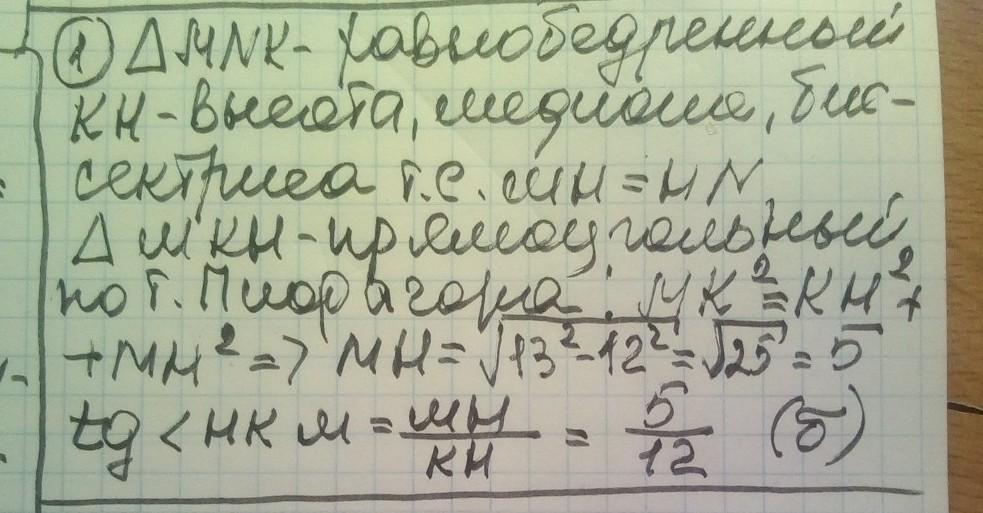 ① ΔMNK - равнобедренный
KH - высота, медиана, бис-
сектриса т.е. MH = HN
Δ MKH - прямоугольный
по т. Пифагора: MK² = KH² +
+ MH² => MH = √13²-12² = √25 = 5
tg < HKM = MH/KH = 5/12 (б)